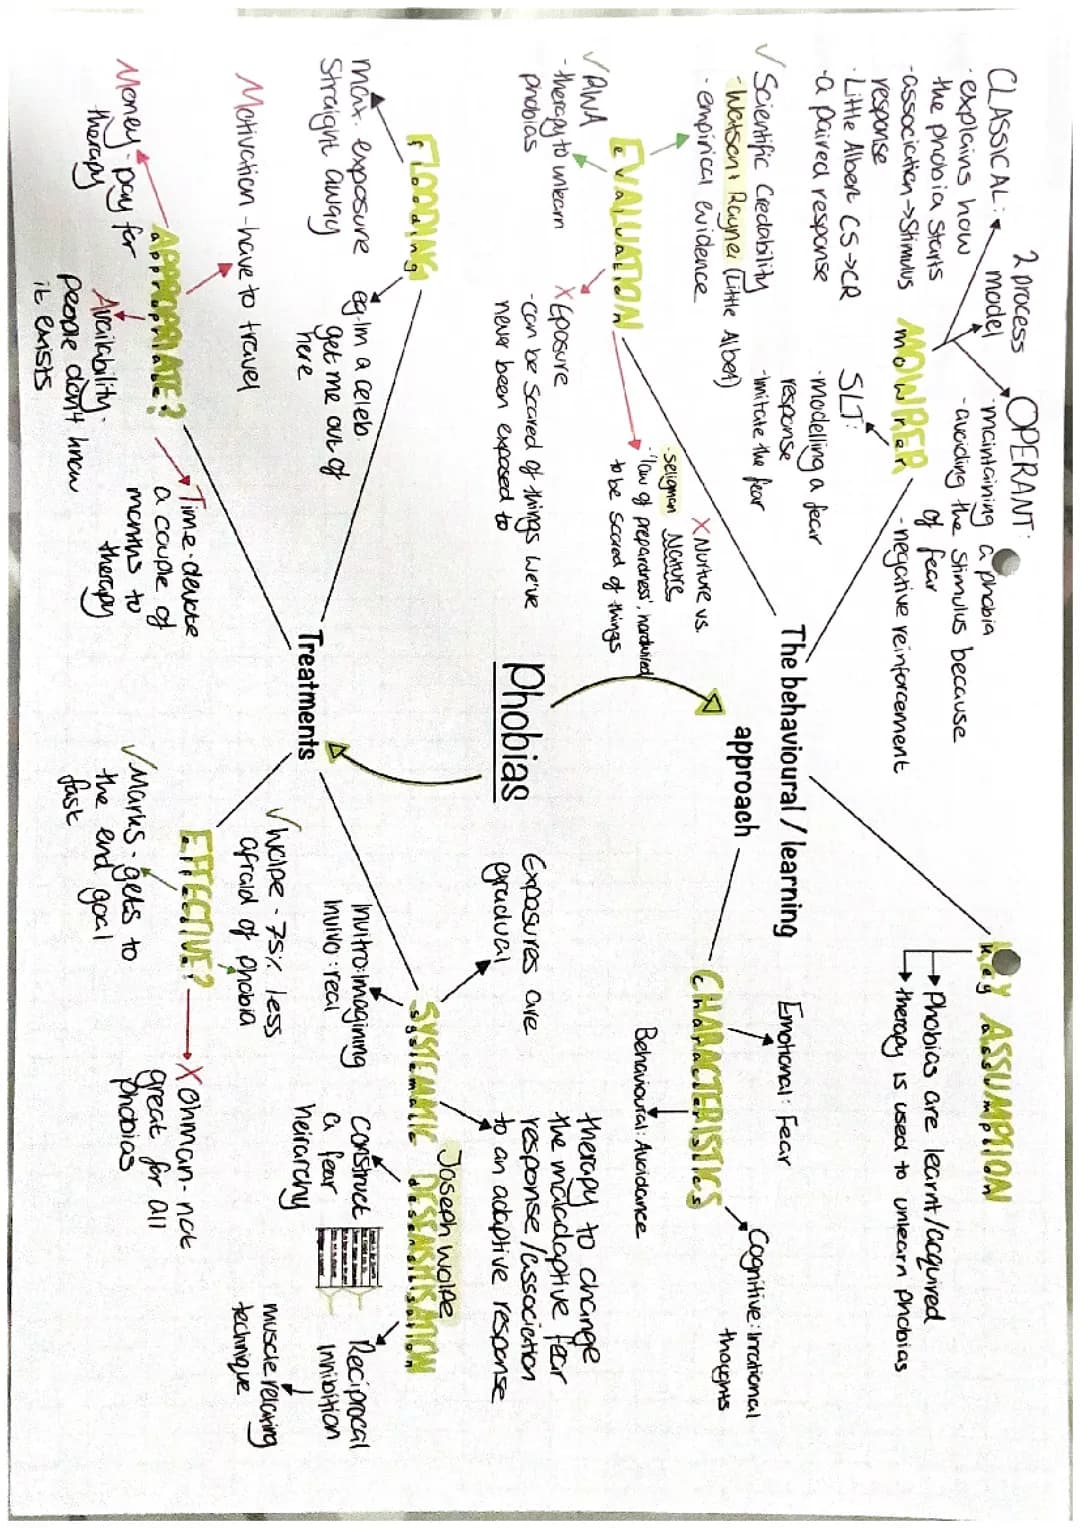 Phobias
The behavioural / learning
approach
MOWRER
mowrer
2 process
model
CLASSICAL:
· explains how
the phobia starts
- association → Stimulus
response
· Little Albert CS → CR
- a paired response
OPERANT:
· maintaining a phobia
- avoiding the stimulus because
of fear
- negative reinforcement
SLT:
· modelling a fear
response
- imitate the fear
KEY ASSUMPTION
key assumption
Phobias are learnt/acquired
therapy is used to unlearn phobias
CHARACTERISTICS
characteristics
Emotional: Fear
Behavioural: Avoidance
Cognitive: irrational
thoughts
EVALUATION
Evaluation
✓ Scientific Credability
- Watson & Rayner (Little Albert)
· empirical evidence
✓ RWA
- therapy to unlearn
phobias
X Exposure
- can be scared of things we've
never been exposed to
X Nurture vs.
Nature
· seligman
- 'law of preparedness', hardwired
to be scared of things
Treatments
FLOODING
flooding
max. exposure
straight away
eg. im a celeb
get me out of
here
APPROPRIATE?
appropriate?
Motivation - have to travel
Money - pay for
therapy
Availability -
people don't know
it exists
Time - devote
a couple of
months to
therapy
EFFECTIVE?
effective?
✓ Wolpe - 75% less
afraid of phobia
✓ Marks - gets to
the end goal
fast
X Ohman - not
great for all
phobias
SYSTEMATIC DESENSITISATION
systematic desensitisation
Joseph Wolpe
Exposures are
gradual
therapy to change
the maladaptive fear
response / association
to an adaptive response
Invitro: imagining
Invivo: real
construct
a fear
heirarchy
Reciprocal
Inhibition
muscle relaxing
technique